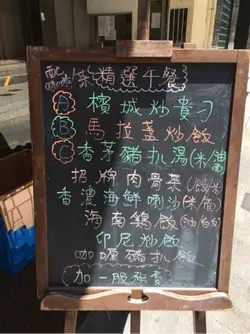 配咖啡/茶 精選午餐
A 檳城炒貴刁
B 馬拉盞炒飯
C 香茅豬扒湯(米/油麵)
招牌肉骨茶(飯/米)
香濃海鮮喇沙(米/油)
海南鷄飯(油/白)
印尼炒飯
咖喱豬扒飯
加一服務費